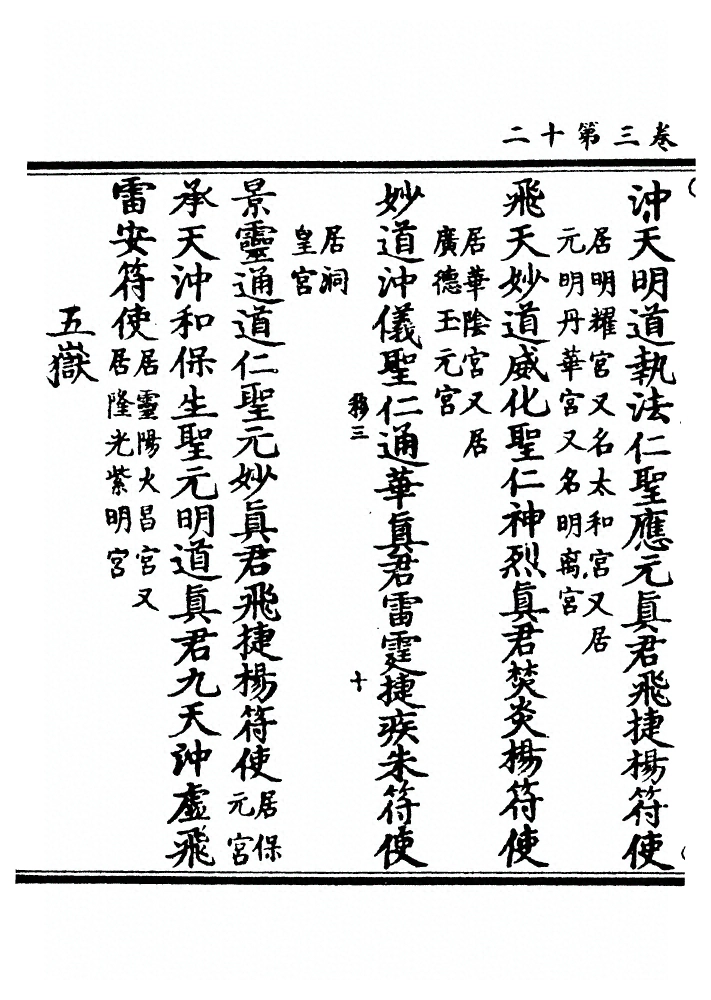 卷三第十二
沖天明道執法仁聖應元眞君飛捷楊符使
居明耀宮又名太和宮又居
元明丹華宮又名明离宮
飛天妙道威化聖仁神烈眞君焚炎楊符使
居華陰宮又居
廣德王元宮
移三
十
妙道沖儀聖仁通華眞君雷霆捷疾朱符使
居洞
皇宮
景靈通道仁聖元妙眞君飛捷楊符使居保
元宮
承天沖和保生聖元明道眞君九天沖虛飛
雷安符使居靈陽火昌宮又
居隆光紫明宮
五嶽